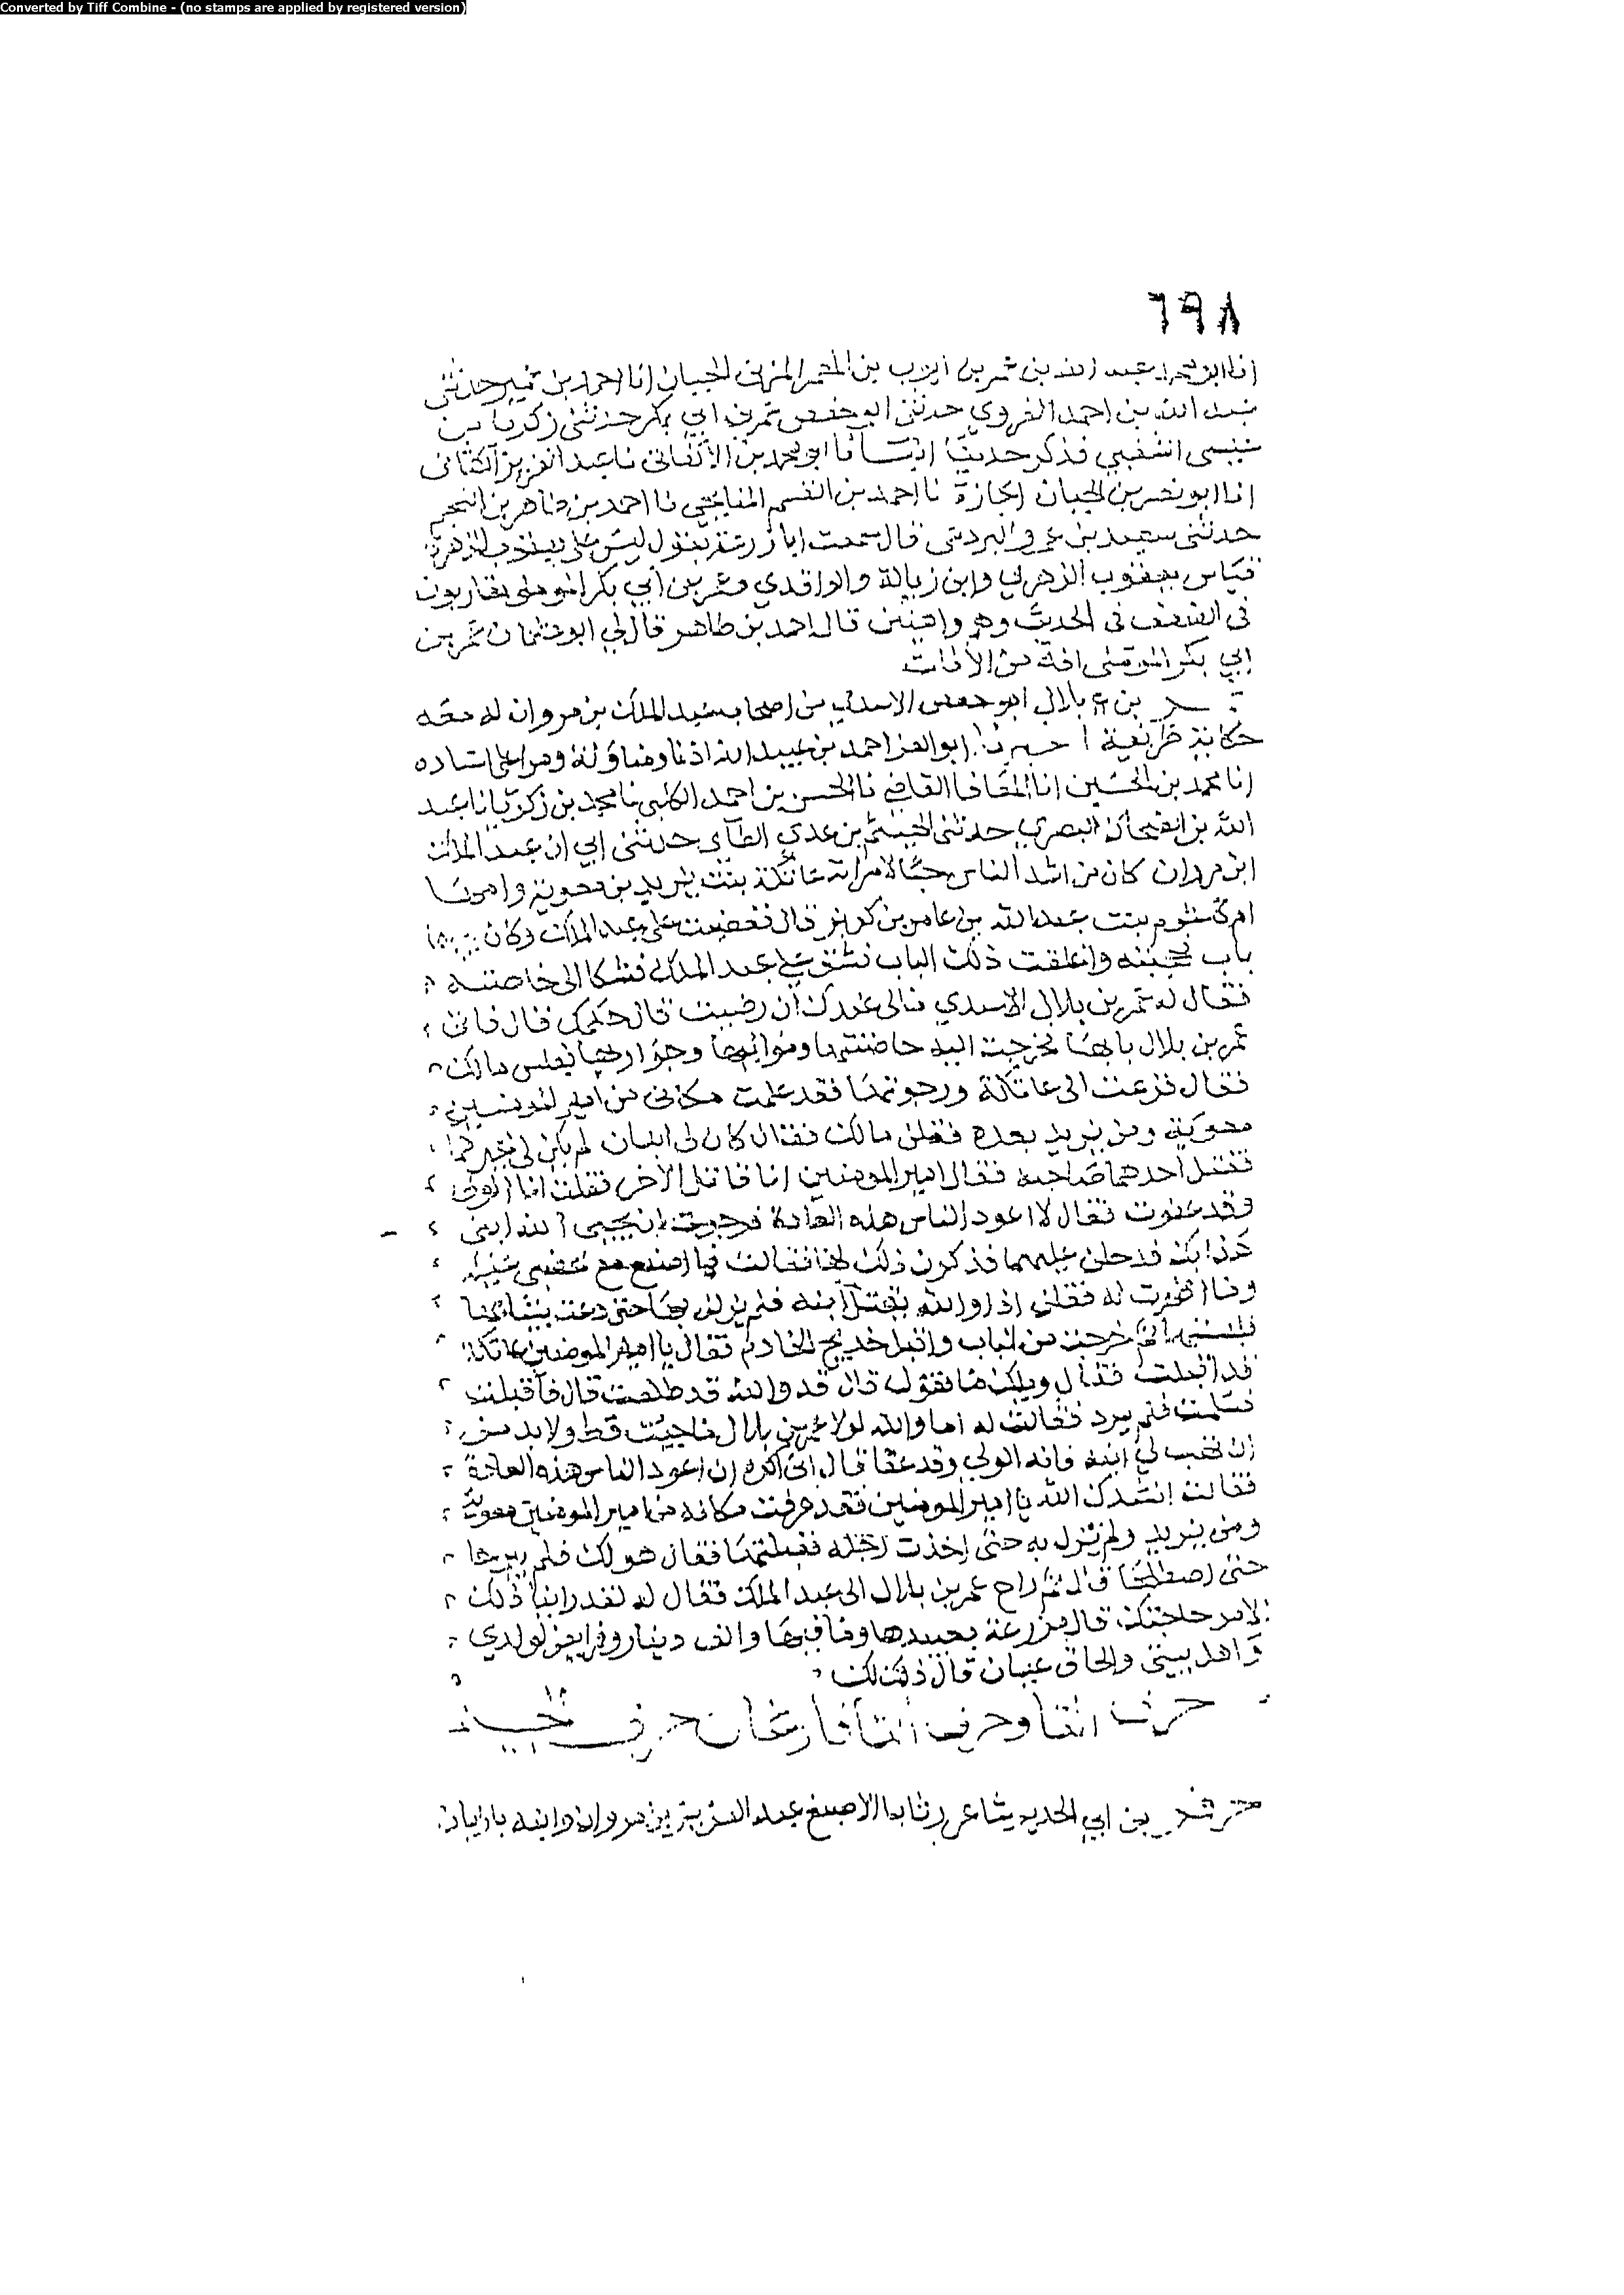 Converted by Tiff Combine - (no stamps are applied by registered version)
٦٩٨
انا ابو محمد عبد الله بن عمر بن ايوب بن المعمر المزني الجبان انا احمد بن عمير حدثني
عبد الله بن احمد الفروي حدثني ابو حفص عمر بن ابي بكر حدثني زكريا بن
عيسى الشعبي فذكر حديثا انبانا ابو محمد بن الاكفاني نا عبد العزيز الكتاني
انا ابو نصر بن الجبان اجازة نا احمد بن القسم الميانجي نا احمد بن طاهر بن النجم
حدثني سعيد بن عمرو البردعي قال سمعت ابا زرعة يقول ليس على يعقوب الزهري
قياس يعقوب الزهري وابن زبالة والواقدي وعمر بن ابي بكر الموصلي يقاربون
في الضعف في الحديث وهم واهيين قال احمد بن طاهر قال لي ابو عثمان عمر بن
ابي بكر الموصلي افة من الافات
عمر بن بلال ابو حفص الاسدي من اصحاب عبد الملك بن مروان له معه
حكاية ظريفة اخبرنا ابو العز احمد بن عبيد الله اذنا ومناولة وقرا علي اسناده
انا محمد بن الحسين انا المعافا القاضي نا الحسن بن احمد الكلبي نا محمد بن زكريا نا عبد
الله بن الضحاك البصري حدثني الهيثم بن عدي الطاي حدثني ابي ان عبد الملك
ابن مروان كان من اشد الناس حبا لامراته عاتكة بنت يزيد بن معوية وامها
ام كلثوم بنت عبد الله بن عامر بن كريز قال فغضبت على عبد الملك وكان بينهما
باب فحجبته واغلقت ذلك الباب فشق على عبد الملك فشكا الى خاصته
فقال له عمر بن بلال الاسدي مالي عندك ان رضيت قال حكمك قال فاتى
عمر بن بلال بابها فخرجت اليه حاضنتها ومواليها وجواريها فقلن مالك
فقال فزعت الى عاتكة ورجوتها فقد علمت مكاني من امير المومنين
معوية ومن يزيد بعده فقلن مالك فقال كان لي ابنان لم يكن لي غيرهما
فقتل احدهما صاحبه فقال امير المومنين انا قاتل الاخر فقلت انا الولي
وقد عفوت فقال لا اعود الناس هذه العادة فرجوت ان يحيي الله ابني
هذا بك فدخلن عليها فذكرن ذلك لها فقالت فما اصنع مع غضبي عليه
وما اظهرت له فقلن اذا والله يقتل ابنه فلم يزلن بها حتى دعت بثيابها
فلبستها ثم خرجت من الباب واقبل خديج الخادم فقال يا امير المومنين عاتكة
قد اقبلت فقال ويلك ما تقول قال قد والله قد طلعت قال فاقبلت
فسلمت فلم يرد فقالت له اما والله لولا عمر بن بلال ما جيئت قط ولا بد من
ان تهب لي ابنه فانه الولي وقد عفا قال اني اكره ان اعود الناس هذه العادة
فقالت انشدك الله يا امير المومنين فقد عرفت مكانه من امير المومنين معوية
ومن يزيد ولم تزل به حتى اخذت رجله فقبلتها فقال هو لك فلم يبرحا
حتى اصطلحا قال ثم راح عمر بن بلال الى عبد الملك فقال له لقد راينا ذلك
الامر حاجتك قال مزرعة بعبيدها وما فيها والف دينار وفرايض لولدي
واهل بيتي والحاق عيالي قال ذلك لك
حرف وحرف حرف
بن ابي الحديد شاعر رثا ابا الاصبغ عبد العزيز بن مروان وابنه